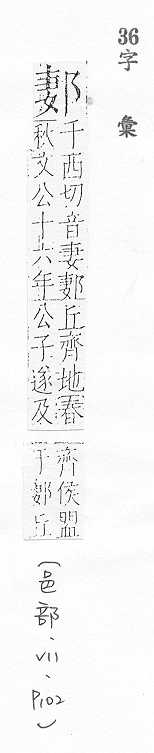 36字彙
郪
千西切音妻郪丘齊地春
秋文公十六年公子遂及
齊侯盟
于郪丘
(邑部、vii、P102)